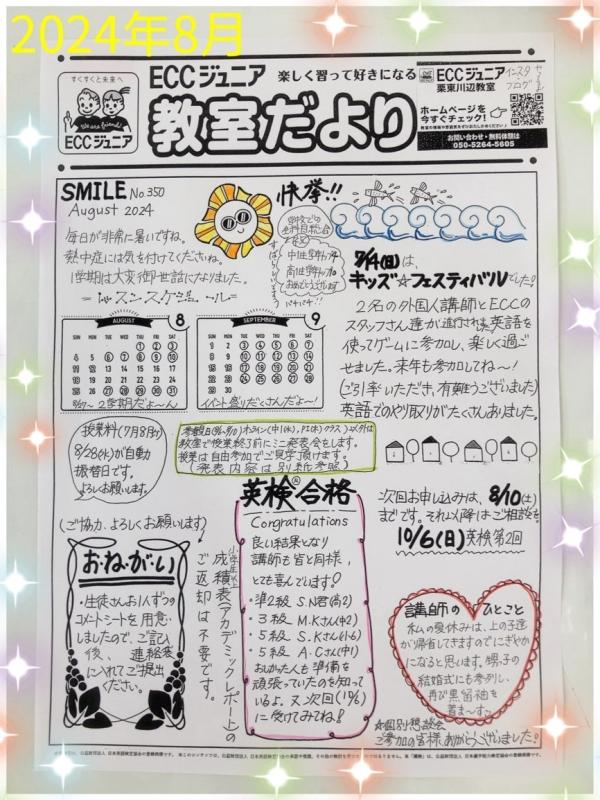 2024年8月
すくすくと未来へ
We are friends!
ECCジュニア
ECCジュニア 楽しく習って好きになる
教室だより
ECCジュニア
栗東川辺教室
インスタ
ブログ
ホームページを
今すぐチェック!
お問い合わせ・無料体験は
050-5264-5605
SMILE No.350
August 2024
毎日が非常に暑いですね。
熱中症には気を付けてくださいね。
1学期は大変御世話になりました。
=レッスンスケジュール=
快挙!!
中1生
高1生
おめでとうございます
パチパチ!!
8/4(日)は、
キッズ☆フェスティバルでした!
2名の外国人講師とECCの
スタッフさん達が進行される英語を
使ってゲームに参加し、楽しく過ご
せました。来年も参加してね〜!
(ご引率いただき、有難うございました)
英語でのやり取りがたくさんありました。
AUGUST 8
SUN MON TUE WED THU FRI SAT
1 2 3
4 5 6 7 8 9 10
11 12 13 14 15 16 17
18 19 20 21 22 23 24
25 26 27 28 29 30 31
8/27〜2学期だよ〜ん
SEPTEMBER 9
SUN MON TUE WED THU FRI SAT
1 2 3 4 5 6 7
8 9 10 11 12 13 14
15 16 17 18 19 20 21
22 23 24 25 26 27 28
29 30
イベント盛りだくさんだよ〜!
授業料(7月8月分)
8/28(水)が自動
振替日です。
よろしくお願いします。
教室で授業終了前にミニ発表会をします。
授業は自由参加でご見学頂けます。
(発表内容は別紙参照)
英検®合格
Congratulations
良い結果となり
講師も皆と同様、
とても喜んでいます!
・準2級 S.N君(高2)
・3級 M.Kさん(中2)
・5級 S.Kさん(小6)
・5級 A.Cさん(中1)
おしかった人も準備を
頑張っていたのを知って
いるよ。又、次回(10/6)
に受けてみてね!
次回お申し込みは、8/10(土)
までです。それ以降はご相談を
10/6(日)英検第2回
(ご協力、よろしくお願いします)
お・ね・が・い
・生徒さんお1人ずつの
コメントシートを用意
しましたので、ご記入
後、連絡袋
に入れてご提出
ください。
小学生以上
成績表(アカデミックレポート)の
ご返却は不要です。
講師のひとこと
私の夏休みは、上の子達
が帰省してきますのでにぎやか
になると思います。甥子の
結婚式にも参列し、
再び黒留袖を
着ま〜すっ
☆個別懇談会
ご参加の皆様、ありがとうございました!